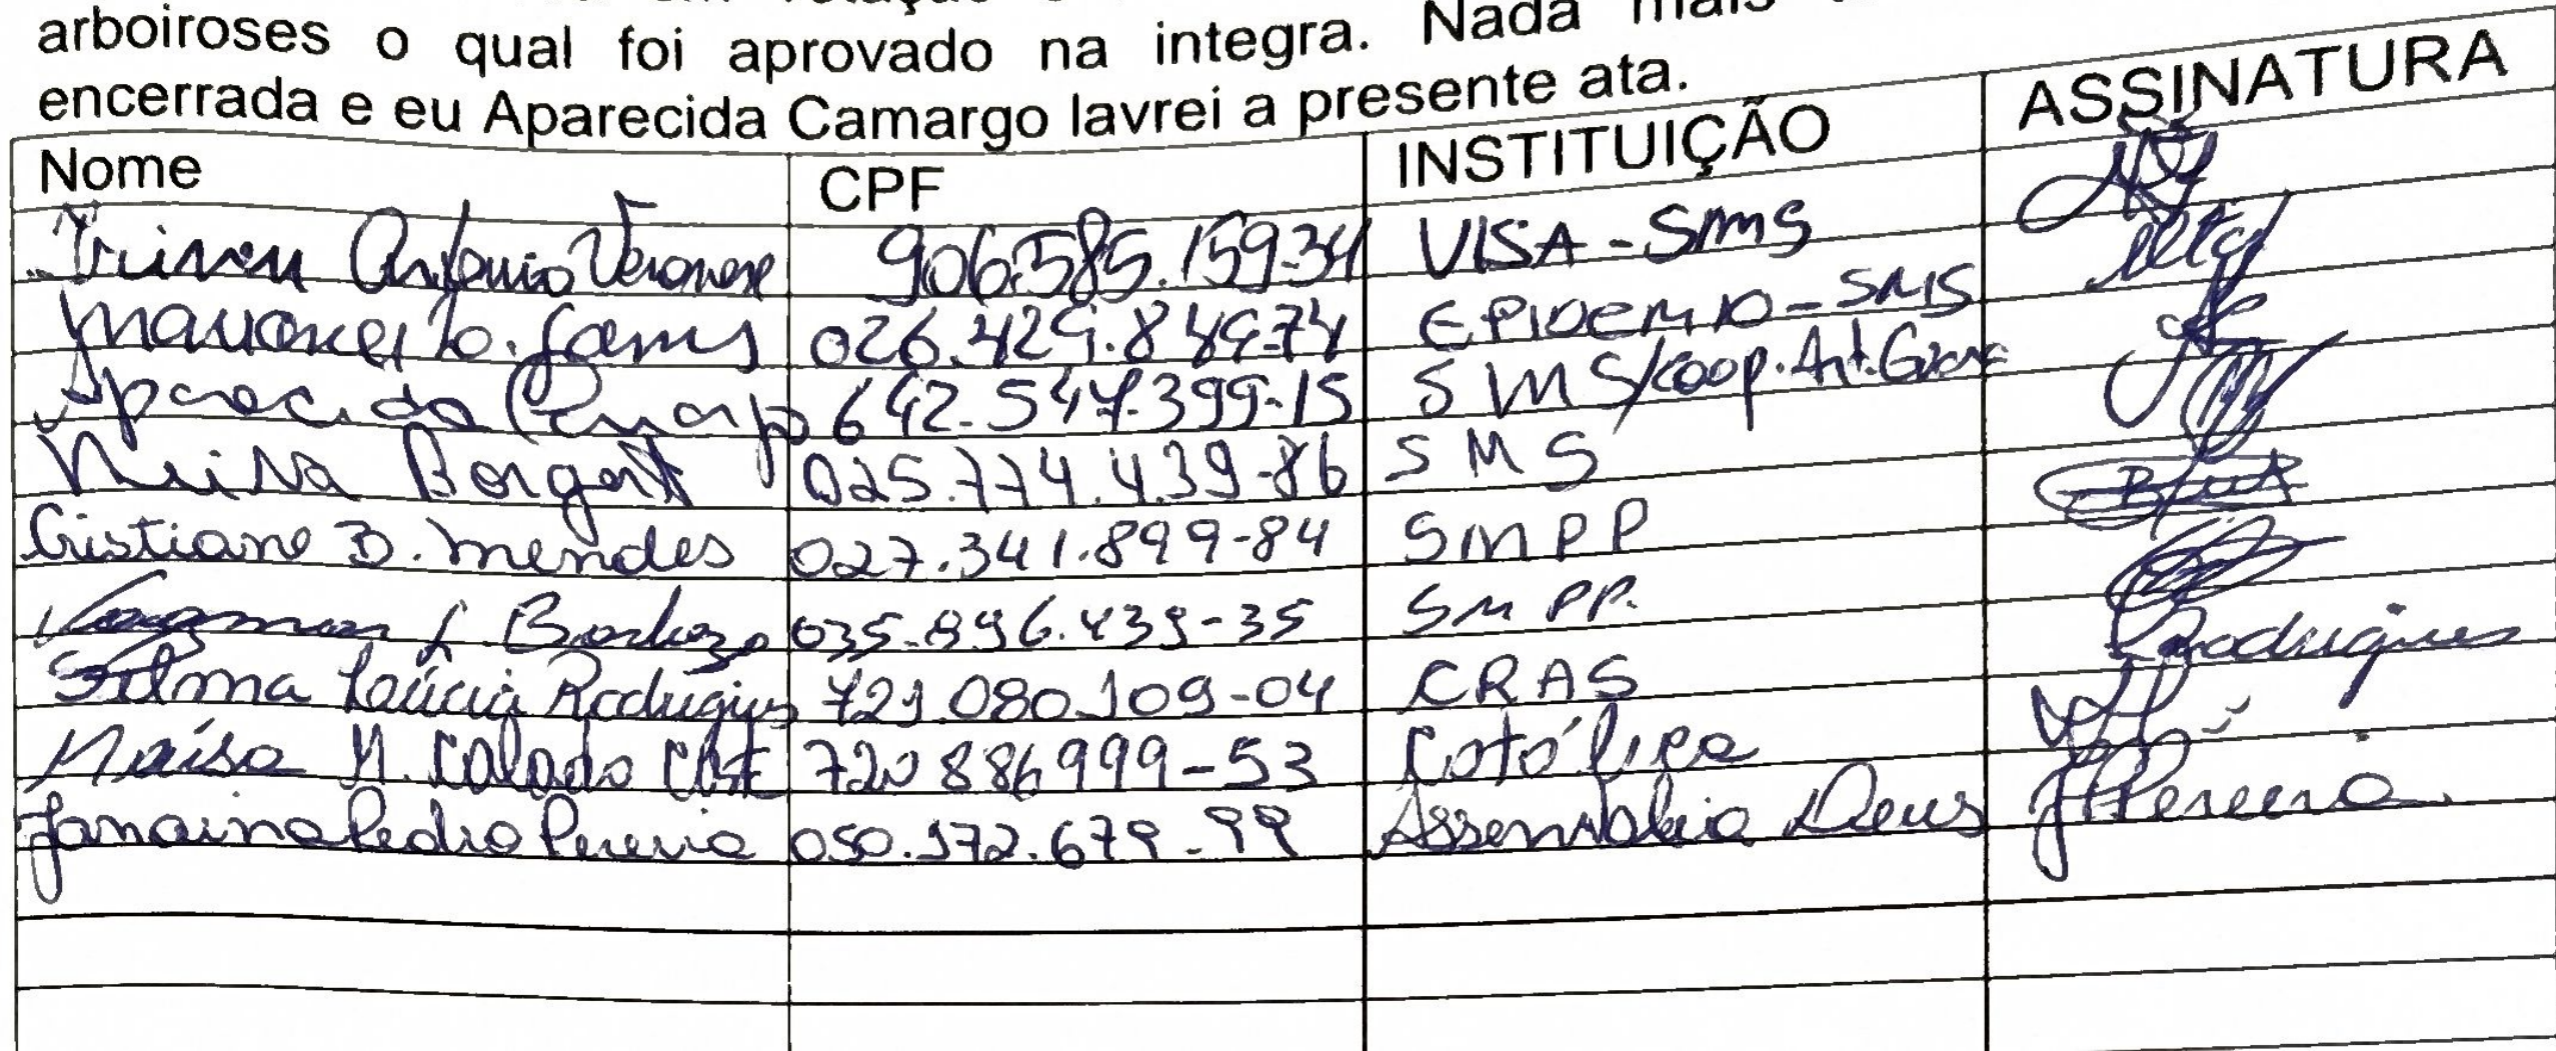 arboiroses o qual foi aprovado na integra. Nada mais
encerrada e eu Aparecida Camargo lavrei a presente ata.
Nome CPF INSTITUIÇÃO ASSINATURA
Antonio Veronese 906.585.159-34 VISA - SMS
026.429.849-74 EPIDEMIO - SMS
Aparecida 642.547.399-15 SMS/Coop. Ant.
Neiva Borgert 025.774.439-86 SMS
Cristiane B. Mendes 027.341.899-84 SMPP
035.896.439-35 SMPP.
Lúcia Rodrigues 721.080.109-04 CRAS Rodrigues
Maísa M. Calado 720886999-53 Católica
Janaina Pedro Pereira 050.172.679-99 Assembleia Deus JPereira